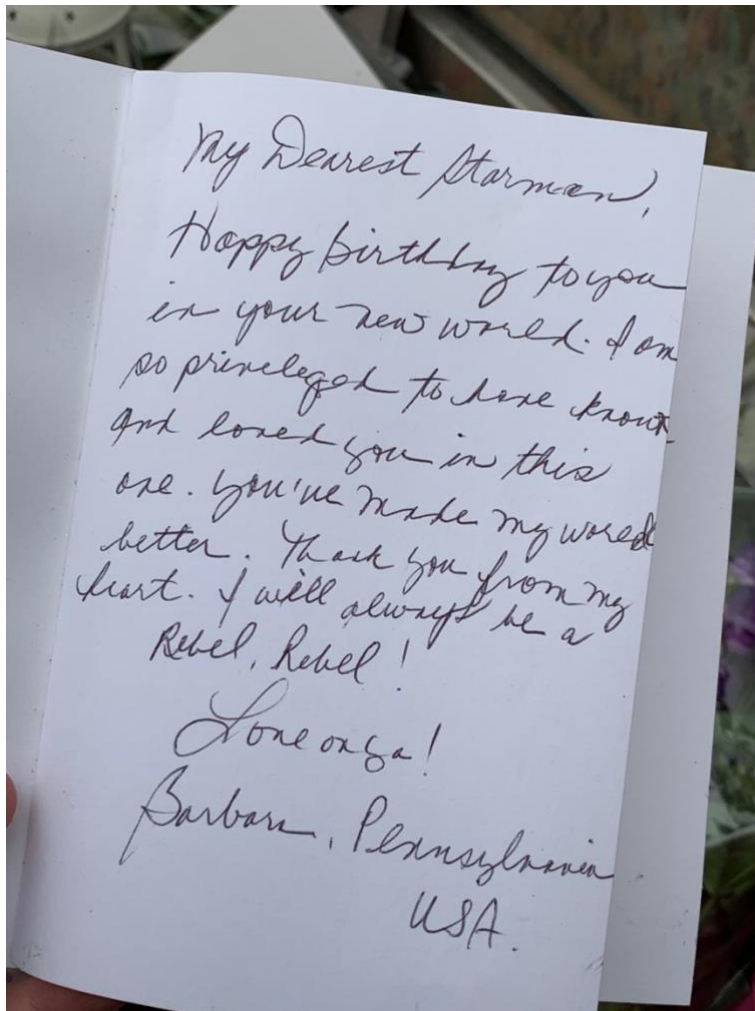 My Dearest Starman,
Happy birthday to you
in your new world. I am
so priveleged to have known
and loved you in this
one. You've made my world
better. Thank you from my
heart. I will always be a
Rebel, Rebel!
Love on ya!
Barbara, Pennsylvania
USA.